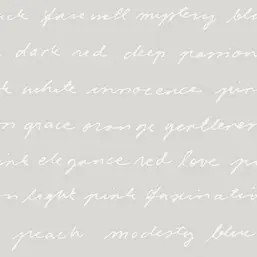 ck farewell mystery bl
dark red deep passion
k white innocence pin
n grace orange gentleness
ink elegance red love p
n light pink fascinati
peach modesty blue